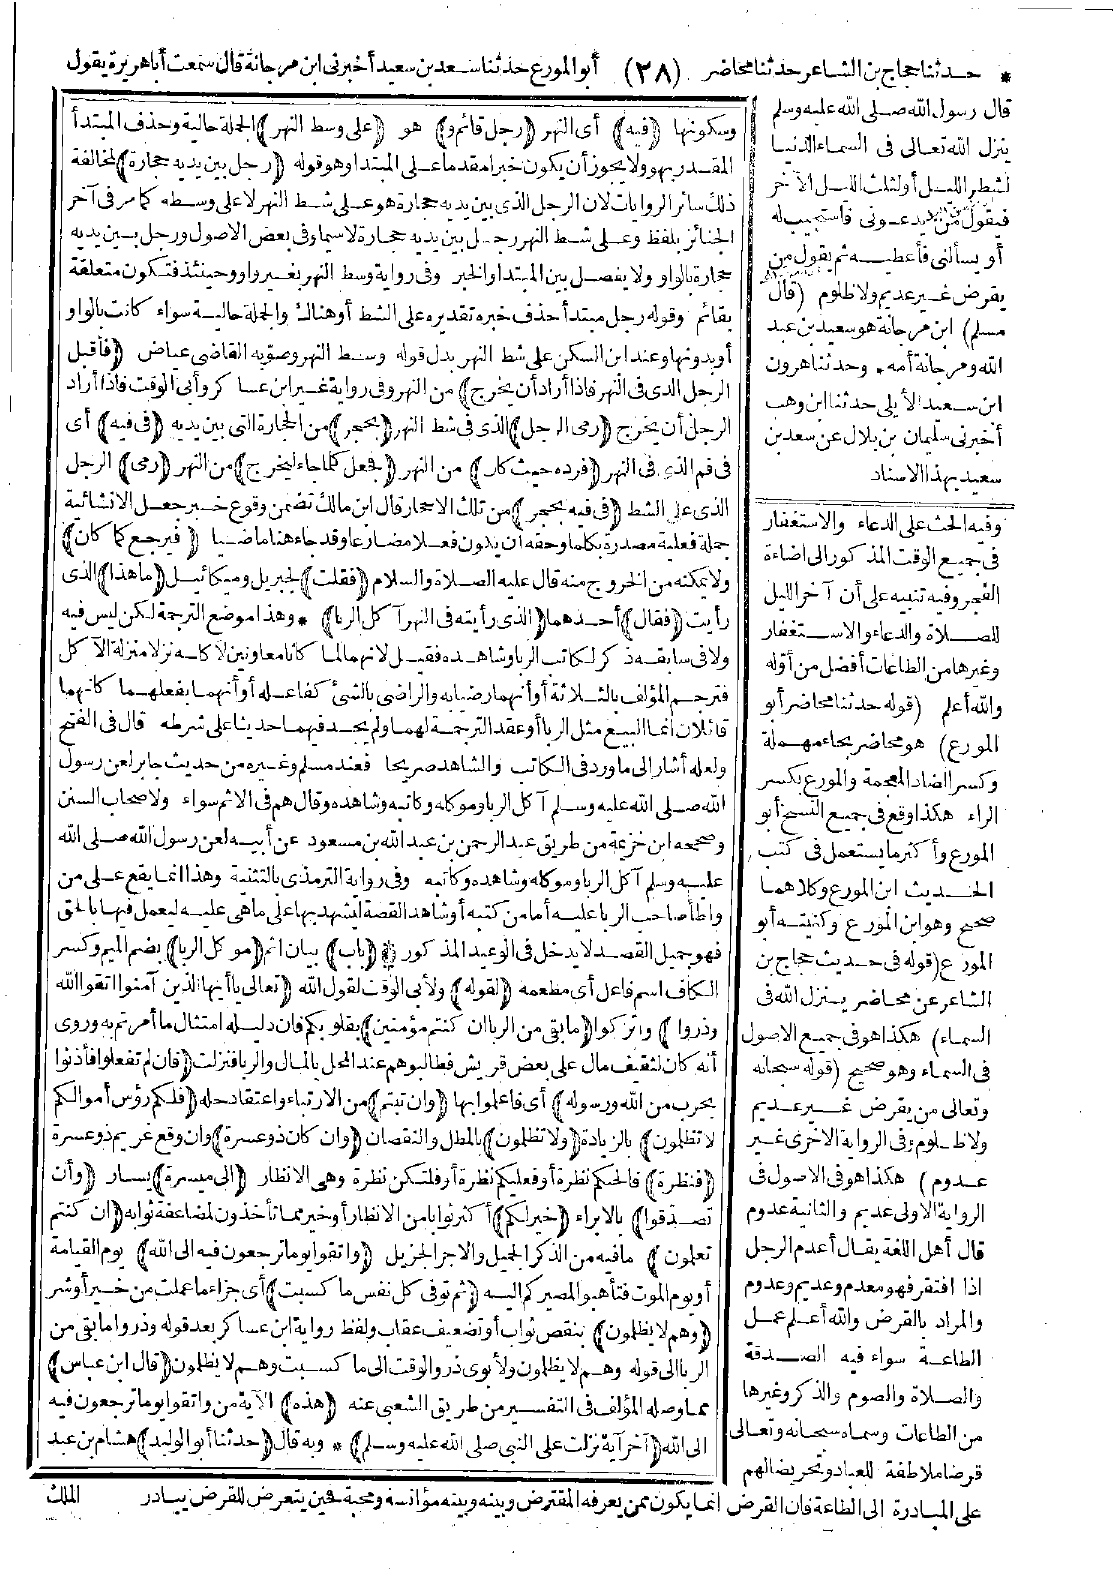 * حدثنا حجاج بن الشاعر حدثنا محاضر (٢٨) أبو المورع حدثنا سعد بن سعيد أخبرنى ابن مرجانة قال سمعت أبا هريرة يقول
قال رسول الله صلى الله عليه وسلم
ينزل الله تعالى فى السماء الدنيا
لشطر الليل أو لثلث الليل الآخر
فيقول من يدعونى فأستجيب له
أو يسألنى فأعطيه ثم يقول من
يقرض غير عديم ولا ظلوم (قال
مسلم) ابن مرجانة هو سعيد بن عبد
الله ومرجانة أمه * وحدثنا هرون
ابن سعيد الأيلى حدثنا ابن وهب
أخبرنى سليمان بن بلال عن سعد بن
سعيد بهذا الاسناد
وفيه الحث على الدعاء والاستغفار
فى جميع الوقت المذكور الى اضاءة
الفجر وفيه تنبيه على أن آخر الليل
للصلاة والدعاء والاستغفار
وغيرها من الطاعات أفضل من أوله
والله أعلم (قوله حدثنا محاضر أبو
المورع) هو محاضر بحاء مهملة
وكسر الضاد المعجمة والمورع بكسر
الراء هكذا وقع فى جميع النسخ أبو
المورع وأكثر ما يستعمل فى كتب
الحديث ابن المورع وكلاهما
صحيح وهو ابن المورع وكنيته أبو
المورع (قوله فى حديث حجاج بن
الشاعر عن محاضر ينزل الله فى
السماء) هكذا هو فى جميع الاصول
فى السماء وهو صحيح (قوله سبحانه
وتعالى من يقرض غير عديم
ولا ظلوم وفى الرواية الاخرى غير
عدوم) هكذا هو فى الاصول فى
الرواية الاولى عديم والثانية عدوم
قال أهل اللغة يقال أعدم الرجل
اذا افتقر فهو معدم وعديم وعدوم
والمراد بالقرض والله أعلم عمل
الطاعة سواء فيه الصدقة
والصلاة والصوم والذكر وغيرها
من الطاعات وسماه سبحانه وتعالى
قرضا ملاطفة للعباد وتحريضا لهم
على المبادرة الى الطاعة فان القرض انما يكون ممن يعرفه المقترض وبينه وبينه مؤانسة ومحبة فحين يتعرض للقرض يبادر
وسكونها ﴿فيه﴾ أى النهر ﴿رجل قائم و﴾ هو ﴿على وسط النهر﴾ الجملة حالية وحذف المبتدأ
المقدر بهو ولا يجوز أن يكون خبرا مقدما على المبتدا وهو قوله ﴿رجل بين يديه حجارة﴾ لمخالفة
ذلك سائر الروايات لان الرجل الذى بين يديه حجارة هو على شط النهر لا على وسطه كما مر فى آخر
الجنائز بلفظ وعلى شط النهر رجل بين يديه حجارة لا سيما وفى بعض الاصول ورجل بين يديه
حجارة بالواو ولا يفصل بين المبتدا والخبر وفى رواية وسط النهر بغير واو وحينئذ فتكون متعلقة
بقائم وقوله رجل مبتدأ حذف خبره تقديره على الشط أو هناك والجملة حالية سواء كانت بالواو
أو بدونها وعند ابن السكن على شط النهر بدل قوله وسط النهر وصوّبه القاضى عياض ﴿فأقبل
الرجل الذى فى النهر فاذا أراد أن يخرج﴾ من النهر وفى رواية غير ابن عساكر وأبى الوقت فاذا أراد
الرجل أن يخرج ﴿رمى الرجل﴾ الذى فى شط النهر ﴿بحجر﴾ من الحجارة التى بين يديه ﴿فى فيه﴾ أى
فى فم الذى فى النهر ﴿فرده حيث كان﴾ من النهر ﴿فجعل كلما جاء ليخرج﴾ من النهر ﴿رمى﴾ الرجل
الذى على الشط ﴿فى فيه بحجر﴾ من تلك الاحجار قال ابن مالك تضمن وقوع خبر جعل الانشائية
جملة فعلية مصدرة بكلما وحقه أن يكون فعلا مضارعا وقد جاء هنا ماضيا ﴿فيرجع كما كان﴾
ولا يمكنه من الخروج منه قال عليه الصلاة والسلام ﴿فقلت﴾ لجبريل وميكائيل ﴿ما هذا﴾ الذى
رأيت ﴿فقال﴾ أحدهما ﴿الذى رأيته فى النهر آكل الربا﴾ * وهذا موضع الترجمة لكن ليس فيه
ولا فى سابقه ذكر لكاتب الربا وشاهده فقيل لانهما لما كانا معاونين لآكله نزلا منزلة الآكل
فترجم المؤلف بالثلاثة أو أنهما رضيا به والراضى بالشئ كفاعله أو أنهما بفعلهما كانهما
قائلان انما البيع مثل الربا أو عقد الترجمة لهما ولم يجد فيهما حديثا على شرطه قال فى الفتح
ولعله أشار الى ما ورد فى الكاتب والشاهد صريحا فعند مسلم وغيره من حديث جابر لعن رسول
الله صلى الله عليه وسلم آكل الربا وموكله وكاتبه وشاهده وقال هم فى الاثم سواء ولاصحاب السنن
وصححه ابن خزيمة من طريق عبد الرحمن بن عبد الله بن مسعود عن أبيه لعن رسول الله صلى الله
عليه وسلم آكل الربا وموكله وشاهده وكاتبه وفى رواية الترمذى بالتثنية وهذا انما يقع على من
واطأ صاحب الربا عليه أما من كتبه أو شاهد القصة ليشهد بها على ما هى عليه ليعمل فيها بالحق
فهو جميل القصد لا يدخل فى الوعيد المذكور * ﴿باب﴾ بيان اثم ﴿موكل الربا﴾ بضم الميم وكسر
الكاف اسم فاعل أى مطعمه ﴿لقوله﴾ ولأبى الوقت لقول الله ﴿تعالى يا أيها الذين آمنوا اتقوا الله
وذروا﴾ واتركوا ﴿ما بقى من الربا ان كنتم مؤمنين﴾ بقلوبكم فان دليله امتثال ما أمرتم به وروى
أنه كان لثقيف مال على بعض قريش فطالبوهم عند المحل بالمال والربا فنزلت ﴿فان لم تفعلوا فأذنوا
بحرب من الله ورسوله﴾ أى فاعلموا بها ﴿وان تبتم﴾ من الارتباء واعتقاد حله ﴿فلكم رؤس أموالكم
لا تظلمون﴾ بالزيادة ﴿ولا تظلمون﴾ بالمطل والنقصان ﴿وان كان ذو عسرة﴾ وان وقع غريم ذو عسرة
﴿فنظرة﴾ فالحكم نظرة أو فعليكم نظرة أو فلتكن نظرة وهى الانظار ﴿الى ميسرة﴾ يسار ﴿وأن
تصدقوا﴾ بالابراء ﴿خير لكم﴾ أكثر ثوابا من الانظار أو خير مما تأخذون لمضاعفة ثوابه ﴿ان كنتم
تعلمون﴾ ما فيه من الذكر الجميل والاجر الجزيل ﴿واتقوا يوما ترجعون فيه الى الله﴾ يوم القيامة
أو يوم الموت فتأهبوا لمصيركم اليه ﴿ثم توفى كل نفس ما كسبت﴾ أى جزاء ما عملت من خير أو شر
﴿وهم لا يظلمون﴾ بنقص ثواب أو تضعيف عقاب ولفظ رواية ابن عساكر بعد قوله وذروا ما بقى من
الربا الى قوله وهم لا يظلمون ولأبوى ذر والوقت الى ما كسبت وهم لا يظلمون ﴿قال ابن عباس﴾
مما وصله المؤلف فى التفسير من طريق الشعبى عنه ﴿هذه﴾ الآية من واتقوا يوما ترجعون فيه
الى الله ﴿آخر آية نزلت على النبى صلى الله عليه وسلم﴾ * وبه قال ﴿حدثنا أبو الوليد﴾ هشام بن عبد
الملك